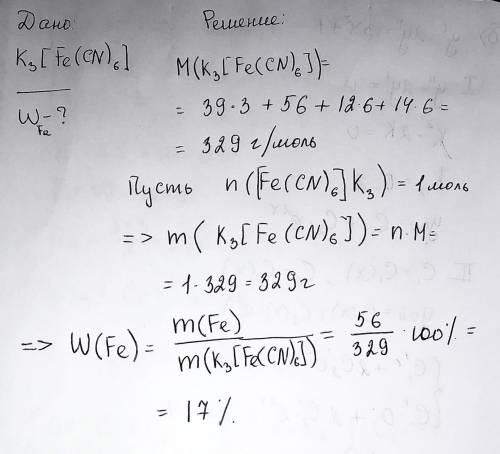 Дано:
Решение:
K₃[Fe(CN)₆]
W Fe - ?
M(K₃[Fe(CN)₆])=
= 39·3 + 56 + 12·6 + 14·6 =
= 329 г/моль
Пусть n([Fe(CN)₆]K₃) = 1 моль
=> m(K₃[Fe(CN)₆]) = n·M=
= 1·329 = 329г
=> W(Fe) = m(Fe) / m(K₃[Fe(CN)₆]) = 56 / 329 · 100% =
= 17%.